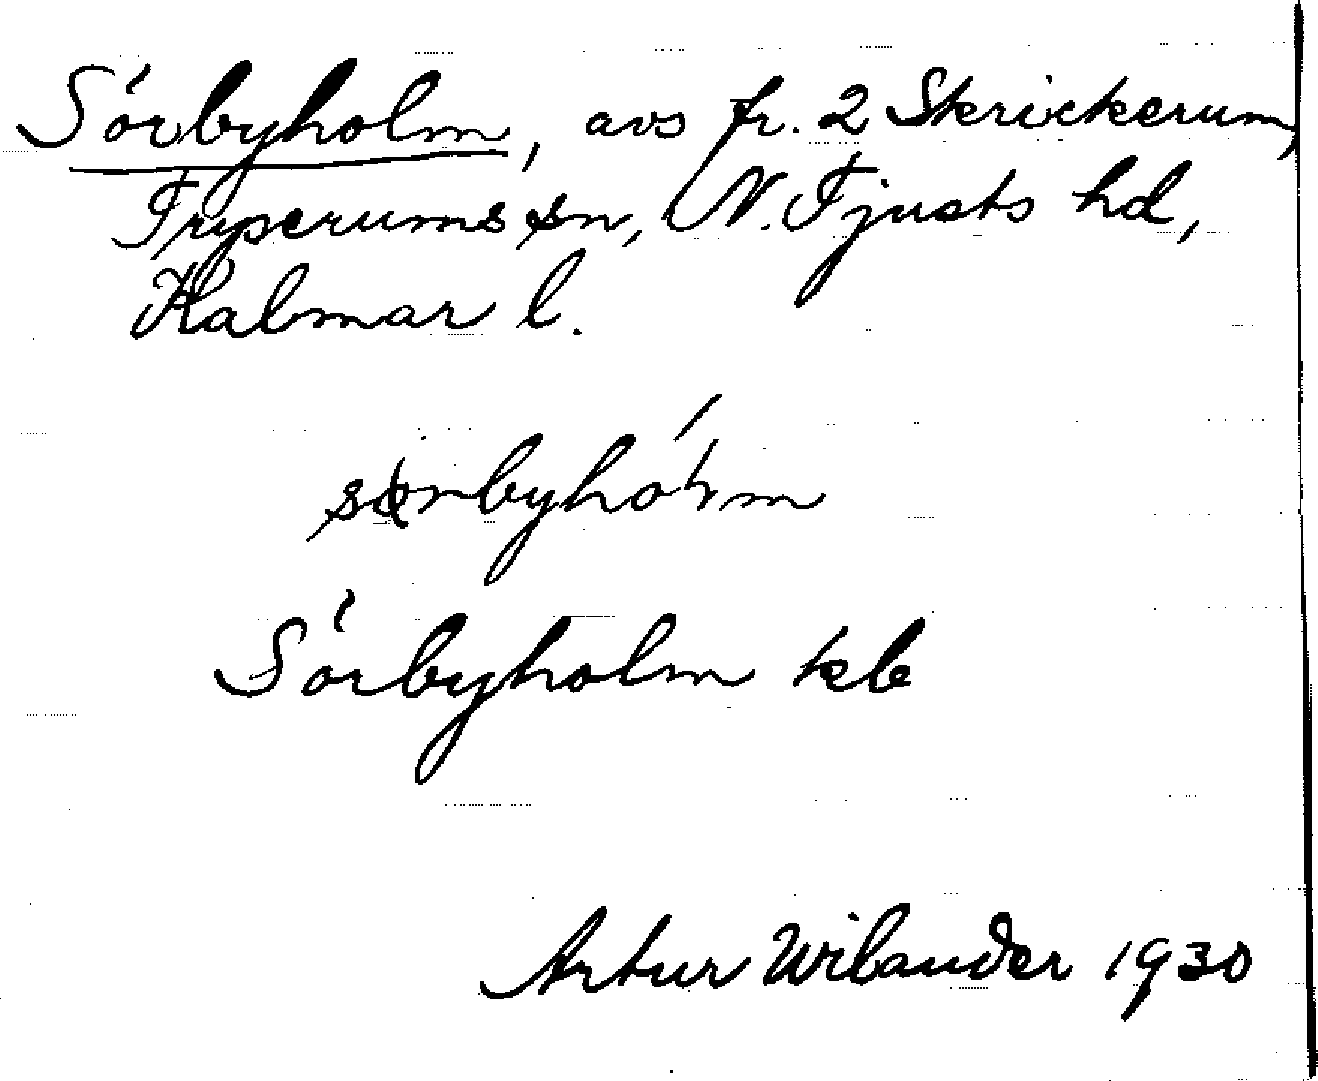 Sörbyholm, avs fr. 2 Skrickerum,
Tryserums sn, N. Tjusts hd,
Kalmar l.
Sörbyholm kb
Artur Wilander 1930